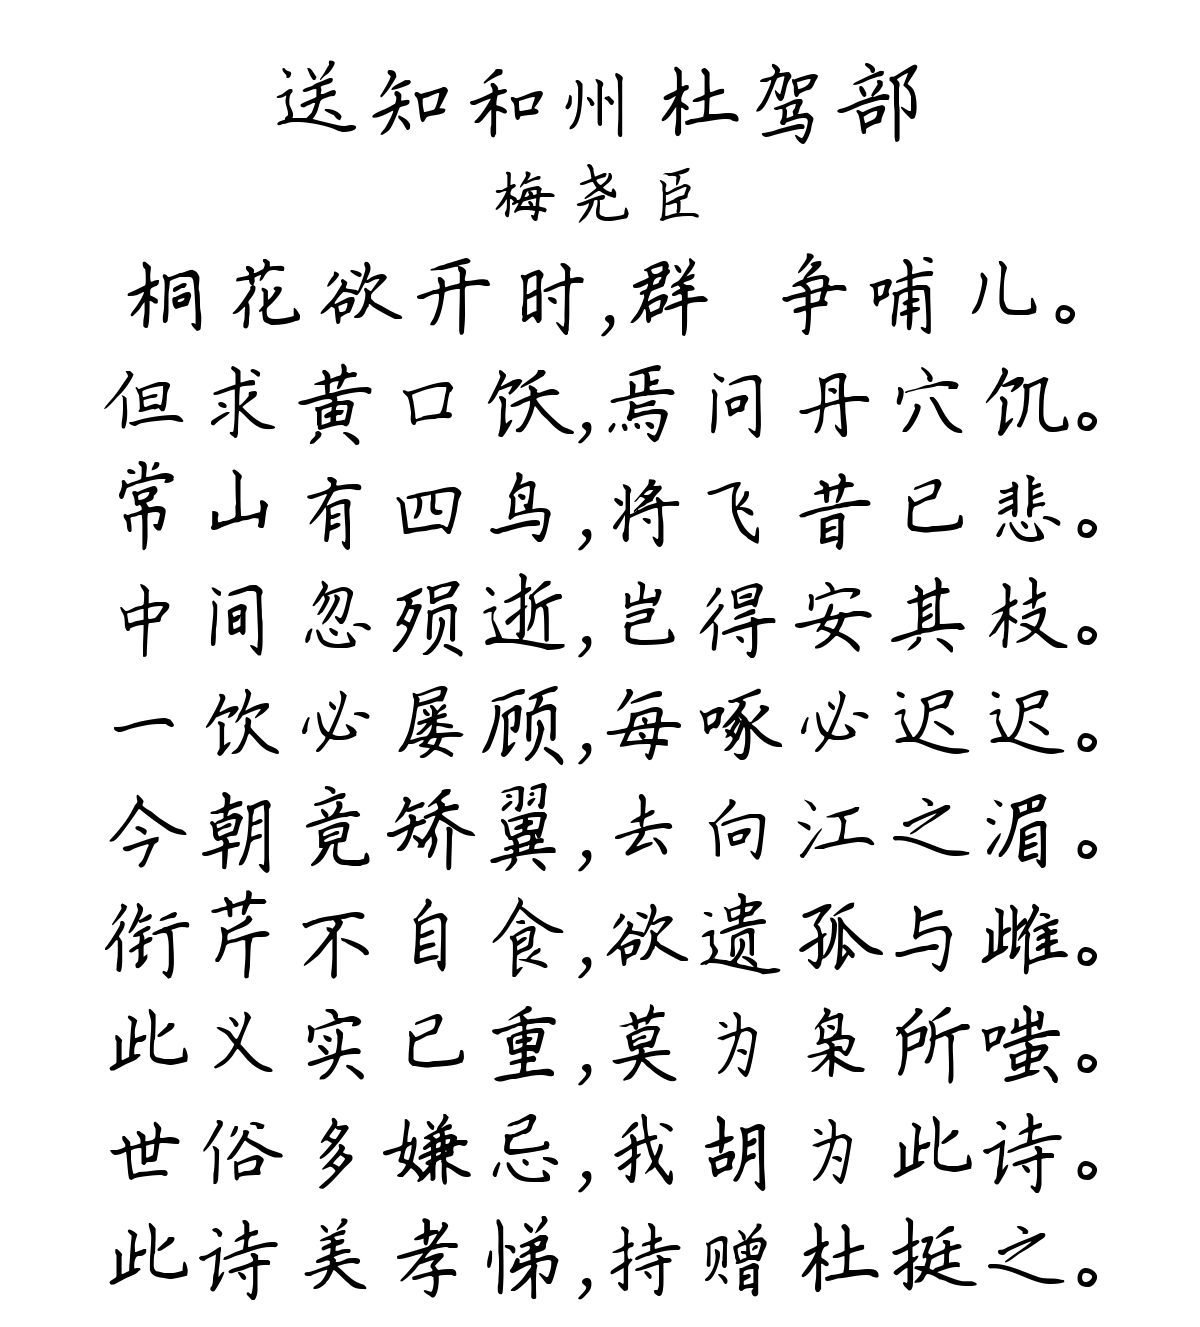 送知和州杜驾部
梅尧臣
桐花欲开时,群 争哺儿。
但求黄口饫,焉问丹穴饥。
常山有四鸟,将飞昔已悲。
中间忽殒逝,岂得安其枝。
一饮必屡顾,每啄必迟迟。
今朝竟矫翼,去向江之湄。
衔芹不自食,欲遗孤与雌。
此义实已重,莫为枭所嗤。
世俗多嫌忌,我胡为此诗。
此诗美孝悌,持赠杜挺之。